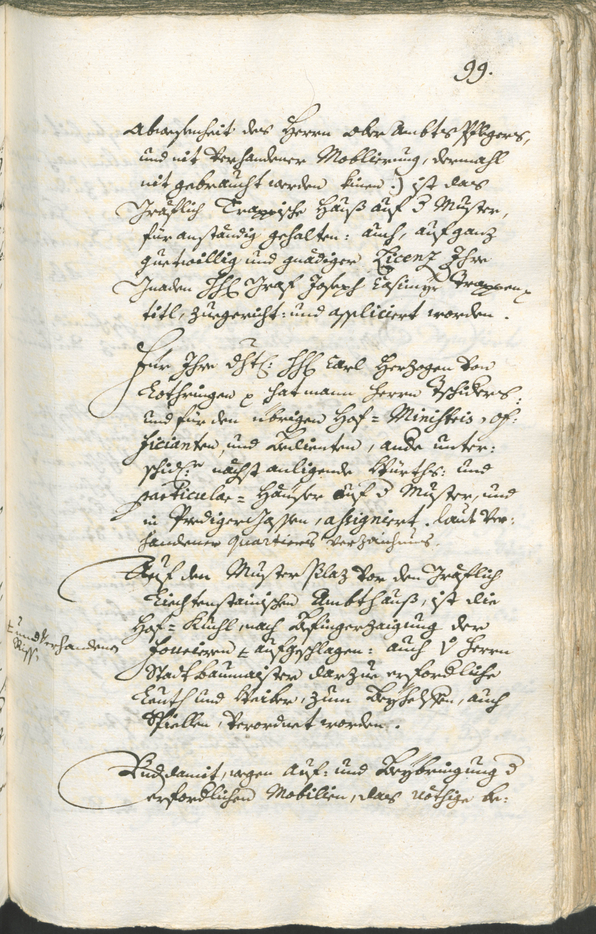 99.
Abwesenheit des Herrn Ober Ambts Pflegers,
und nit verhandener Moblierung, dermahl
nit gebraucht werden kinen :) ist das
Gräflich Trappische Hauß auf d Muster,
für anständig gehalten: auch, auf ganz
guetwillig und gnädiger Licenz Ihro
Gnaden Graf Joseph Casimyr Trappen
titl, zuegericht: und appliciert worden.
Für Ihro Carl Herzogen von
Lothringen hat mann Herrn
und für den übrigen Hof= Ministris, of:
ficianten, und unter:
schidl: nächst anligende Würths: und
particular= Häuser auf d Muster, und
in Prediger Gassen, assigniert, laut ver:
handener Quartiers verzaichnus.
Auf den Muster Plaz vor den Gräflich
Liechtenstainischen Ambthauß, ist die
Hof= Kuchl, nach Befingerzaigung der
Fourieren aufgeschlagen: auch Herrn
Stadtbaumaister darzue erfordliche
Leuth und Weiber, zum auch
verordnet worden.
und verhandenen
Und damit, wegen Auf= und Beybringung d
erfordlichen Mobilien, das nöthige be: